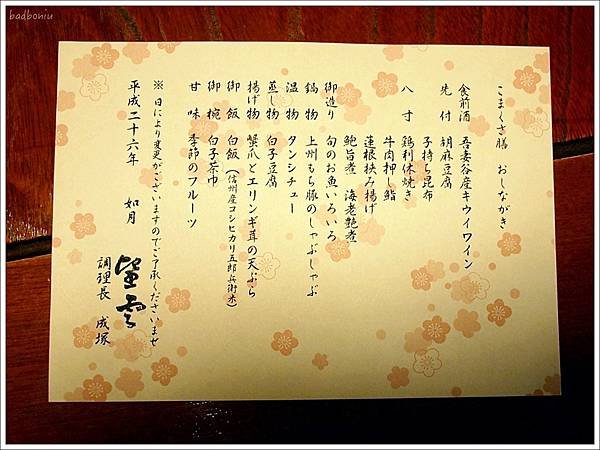 badboniu
こまくさ膳　おしながき
食前酒　吾妻谷産キウイワイン
先　付　胡麻豆腐
子持ち昆布
八　寸　鶏利休焼き
牛肉押し鮨
蓮根挟み揚げ
鮑旨煮　海老艶煮
御造り　旬のお魚いろいろ
鍋　物　上州もち豚のしゃぶしゃぶ
温　物　タンシチュー
蒸し物　白子豆腐
揚げ物　蟹爪とエリンギ茸の天ぷら
御　飯　白飯（信州産コシヒカリ五郎兵衛米）
御　椀　白子茶巾
甘　味　季節のフルーツ
※　日により変更がございますのでご了承くださいませ
平成二十六年　如月
望雲
調理長　成塚